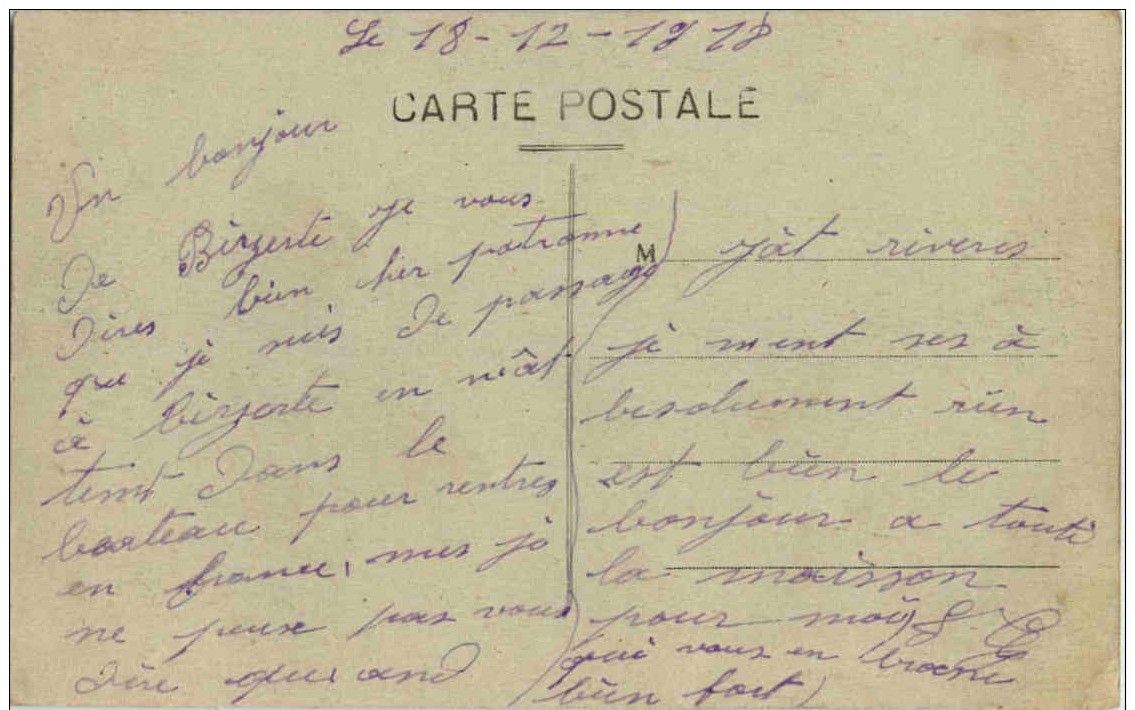 Le 18-12-1918
CARTE POSTALE
Un bonjour
De Bizerte je vous
dires bien cher patronne
que je suis De passage
à bizerte en
temt Dans le
bateau pour rentres
en france, mes je
ne peux pas vous
Dire quand
M
jât riveres
je ment ses à
besolument rien
est bien le
bonjour a toute
la maisson
pour moi
qui vous en brasse
bien fort